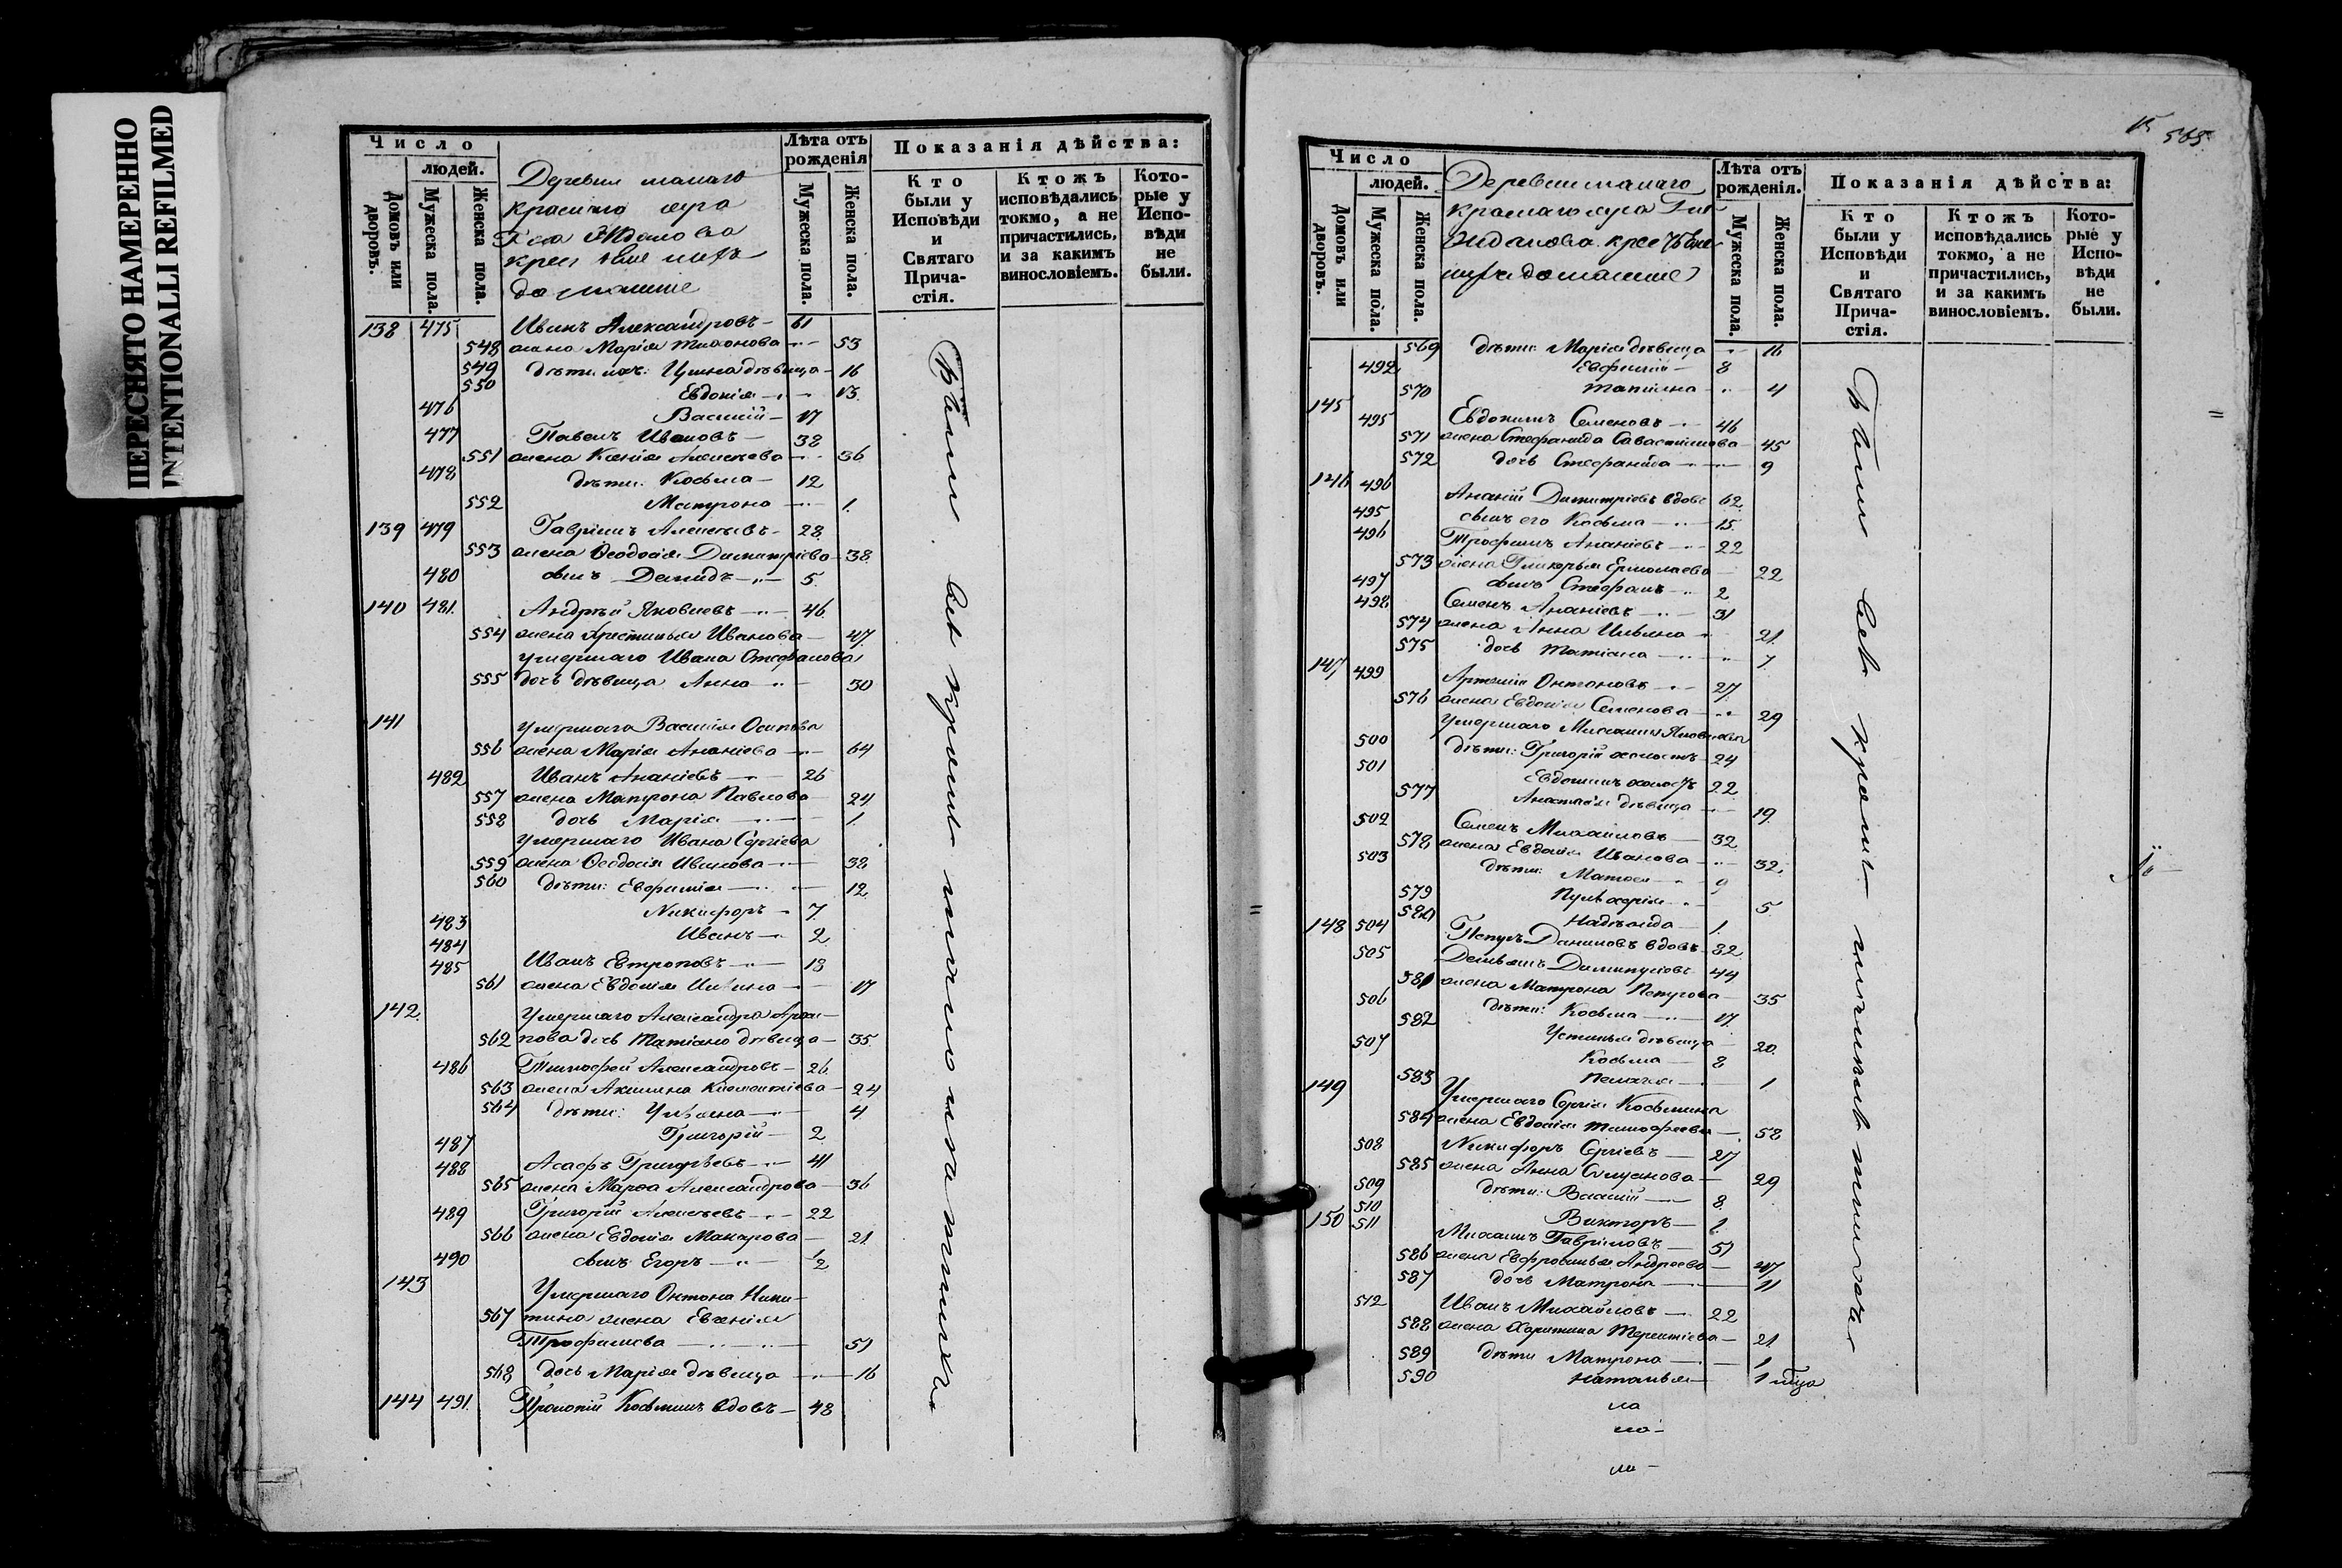 ПЕРЕСНЯТО НАМЕРЕННО
INTENTIONALLI REFILMED
Число
людей.
Домовъ или дворовъ.
Мужеска пола.
Женска пола.
Деревни малаго
краснаго
крест
домашніе
Лѣта отъ рожденія
Мужеска пола.
Женска пола.
Показанія дѣйства:
Кто были у Исповѣди и Святаго Причастія.
Ктожъ исповѣдались токмо, а не причастились, и за какимъ винословіемъ.
Которые у Исповѣди не были.
138 475 Иванъ Александровъ 61
548 жена Марія Тихонова 53
549 дѣти ихъ: дѣвица 16
550 Евдокія 13
476 Василій 17
477 Павелъ Ивановъ 38
551 жена Ксенія Алексѣева 36
478 дѣти: Косьма 12
552 Матрона 1
139 479 Гавріилъ Алексѣевъ 28
553 жена Ѳеодосія Димитріева 38
480 сынъ Демидъ 5
140 481 Андрей Яковлевъ 46
554 жена Христинья Иванова 47
умершаго Ивана Стефанова
555 дочь дѣвица Анна 30
141 умершаго Василія Осипова
556 жена Марія Ананіева 64
482 Иванъ Ананіевъ 26
557 жена Матрона Павлова 24
558 дочь Марія 1
умершаго Ивана Сергіева
559 жена Ѳеодосія Иванова 38
560 дѣти: Евфимія 12
483 Никифоръ 7
484 Иванъ 2
485 Иванъ Евтроповъ 18
561 жена Евдокія Ильина 17
142 Умершаго Александра
562 дочь Татіана дѣвица 35
486 Тимофей Александровъ 26
563 жена Акилина Климентіева 24
564 дѣти: Ульяна 4
487 Григорій 2
488 Асафъ Григорьевъ 41
565 жена Марѳа Александрова 36
489 Григорій Алексѣевъ 22
566 жена Евдокія Макарова 21
490 сынъ Егоръ ½
143 Умершаго Антона Ники-
567 тина жена Евгенія
Трофимова 51
568 дочь Марія дѣвица 16
144 491 Прокопій Косьминъ вдовъ 48
Были всѣ кромѣ
565
Число
людей.
Домовъ или дворовъ.
Мужеска пола.
Женска пола.
Деревни малаго
краснаго
домашніе
Лѣта отъ рожденія.
Мужеска пола.
Женска пола.
Показанія дѣйства:
Кто были у Исповѣди и Святаго Причастія.
Ктожъ исповѣдались токмо, а не причастились, и за какимъ винословіемъ.
Которые у Исповѣди не были.
569 дѣти: Марія дѣвица 16
492 Евфимій 8
570 Татіана 4
145 495 Евдокимъ Семеновъ 46
571 жена Стефанида Савастіанова 45
572 дочь Стефанида 9
146 496 Ананій Димитріевъ вдовъ 62
495 сынъ его Косьма 15
496 Трофимъ Ананіевъ 22
573 жена Гликерья Ермолаева 22
497 сынъ Стефанъ 2
498 Семенъ Ананіевъ 31
574 жена Анна Ильина 21
575 дочь Татіана 7
147 499 Артемій Онтоновъ 27
576 жена Евдокія Семенова 29
Умершаго Михаила Яковлева
500 дѣти: Григорій холостъ 24
501 Евдокимъ холостъ 22
577 Анастасія дѣвица 19
502 Семенъ Михайловъ 32
578 жена Евдокія Иванова 32
503 дѣти: Матвей 9
579 Пульхерія 5
580 Надежда 1
148 504 Петръ Даниловъ вдовъ 32
505 Демьянъ Димитріевъ 44
581 жена Матрона Петрова 35
506 дѣти: Косьма 17
582 Устинья дѣвица 20
507 Косьма 8
583 Пелагея 1
149 Умершаго Сергія Косьмина
584 жена Евдокія Тимофеева 58
508 Никифоръ Сергіевъ 27
585 жена Анна 29
509 дѣти: Василій 8
510 Викторъ
150 511 Михаилъ Гавриловъ 51
586 жена Евфросинья Андреева 47
587 дочь Матрона 11
512 Иванъ Михайловъ 22
588 жена Харитина Терентіева 21
589 дѣти Матрона 1
590 Наталья
Были всѣ кромѣ